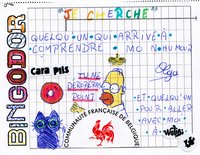 "JE CHERCHE"
BINGODOR
QUELQU'UN QUI ARRIVE À
COMPRENDRE MON HUMOUR
Cara Pils
TU NE
DÉROBERAS
POINT
Olga
ET QUELQU'UN
POUR ALLER
AVEC MOI
À
COMMUNAUTÉ FRANÇAISE DE BELGIQUE